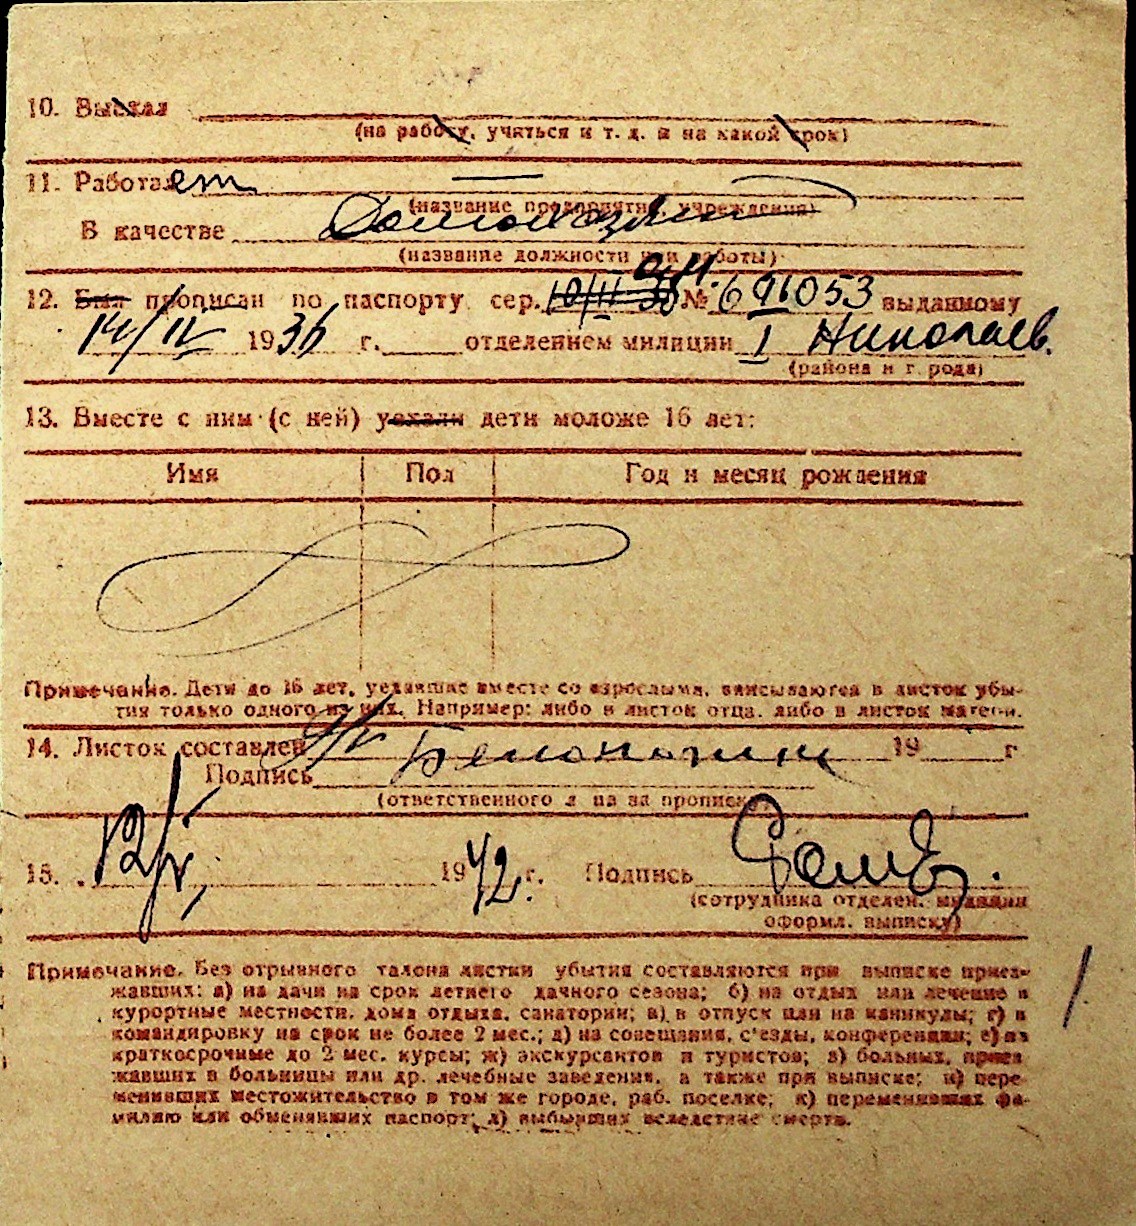 10. Выехал
(на работу, учиться и т. д. и на какой срок)
11. Работает —
(название предприятия, учреждения)
В качестве Домохоз
(название должности или работы)
12. Был прописан по паспорту сер. № 691053 выданному
14/IV 1936 г. отделением милиции I Николаев.
(района и города)
13. Вместе с ним (с ней) уехали дети моложе 16 лет:
Имя Пол Год и месяц рождения
Примечание. Дети до 16 лет, уехавшие вместе со взрослыми, вписываются в листок убы-
тия только одного из них. Например: либо в листок отца, либо в листок матери.
14. Листок составлен 19 г
Подпись
(ответственного лица за прописку)
15. 12/V, 1942 г. Подпись
(сотрудника отделен. милиции
оформл. выписку)
Примечание. Без отрывного талона листки убытия составляются при выписке приез-
жавших: а) на дачи на срок летнего дачного сезона; б) на отдых или лечение в
курортные местности, дома отдыха, санатории; в) в отпуск или на каникулы; г) в
командировку на срок не более 2 мес.; д) на совещания, с'езды, конференции; е) на
краткосрочные до 2 мес. курсы; ж) экскурсантов и туристов; з) больных, приез
жавших в больницы или др. лечебные заведения, а также при выписке; и) пере
менивших местожительство в том же городе, раб. поселке; к) переменивших фа-
милию или обменявших паспорт; л) выбывших вследствие смерти.